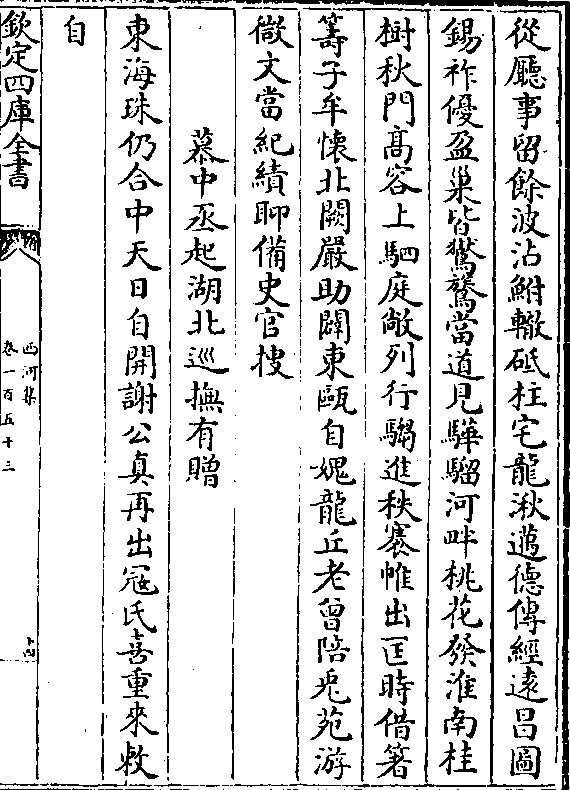 從廳事留餘波沾鮒轍砥柱宅龍湫邁德傳經遠昌圖
錫祚優盈巢皆鸑鷟當道見驊騮河畔桃花發淮南桂
樹秋門高容上駟庭敞列行騶進秩褰帷出匡時借箸
籌子牟懷北闕嚴助闢東甌自媿龍丘老曾陪兎苑游
徵文當紀績聊備史官搜
慕中丞起湖北巡撫有贈
東海珠仍合中天日自開謝公真再出冦氏喜重來敕
自
欽定四庫全書
西河集
卷一百五十三
十四